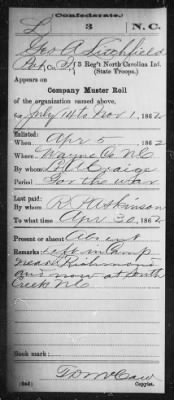 (Confederate.)
L 3 N.C.
Geo A Litchfield
Pvt, Co. 3 Reg't North Carolina Inf.
(State Troops.)
Appears on
Company Muster Roll
of the organization named above,
for July 1st to Nov 1, 1862
Enlisted:
When Apr 5, 1862
Where Wayne Co NC
By whom Craige
Period For the war
Last paid:
By whom
To what time Apr 30, 1862
Present or absent Absent
Remarks: Left in Camp
near Richmond
and now at South
Creek NC
Book mark:
(642) Copyist.